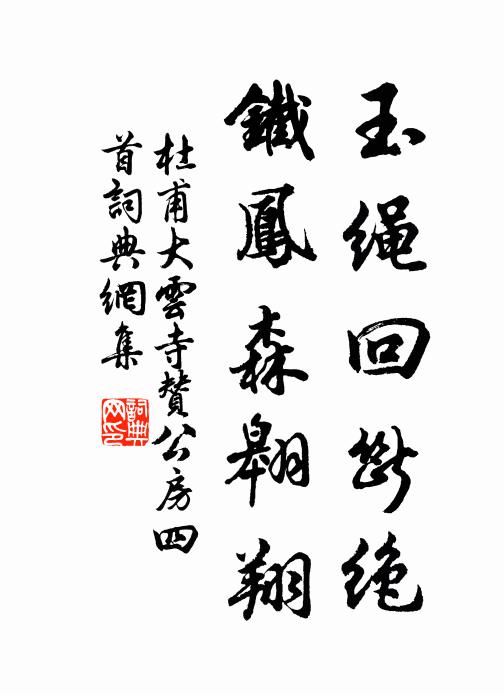 玉繩回斷絕
鐵鳳森翱翔
杜甫大雲寺贊公房四
首詞典網集
詞典
网印